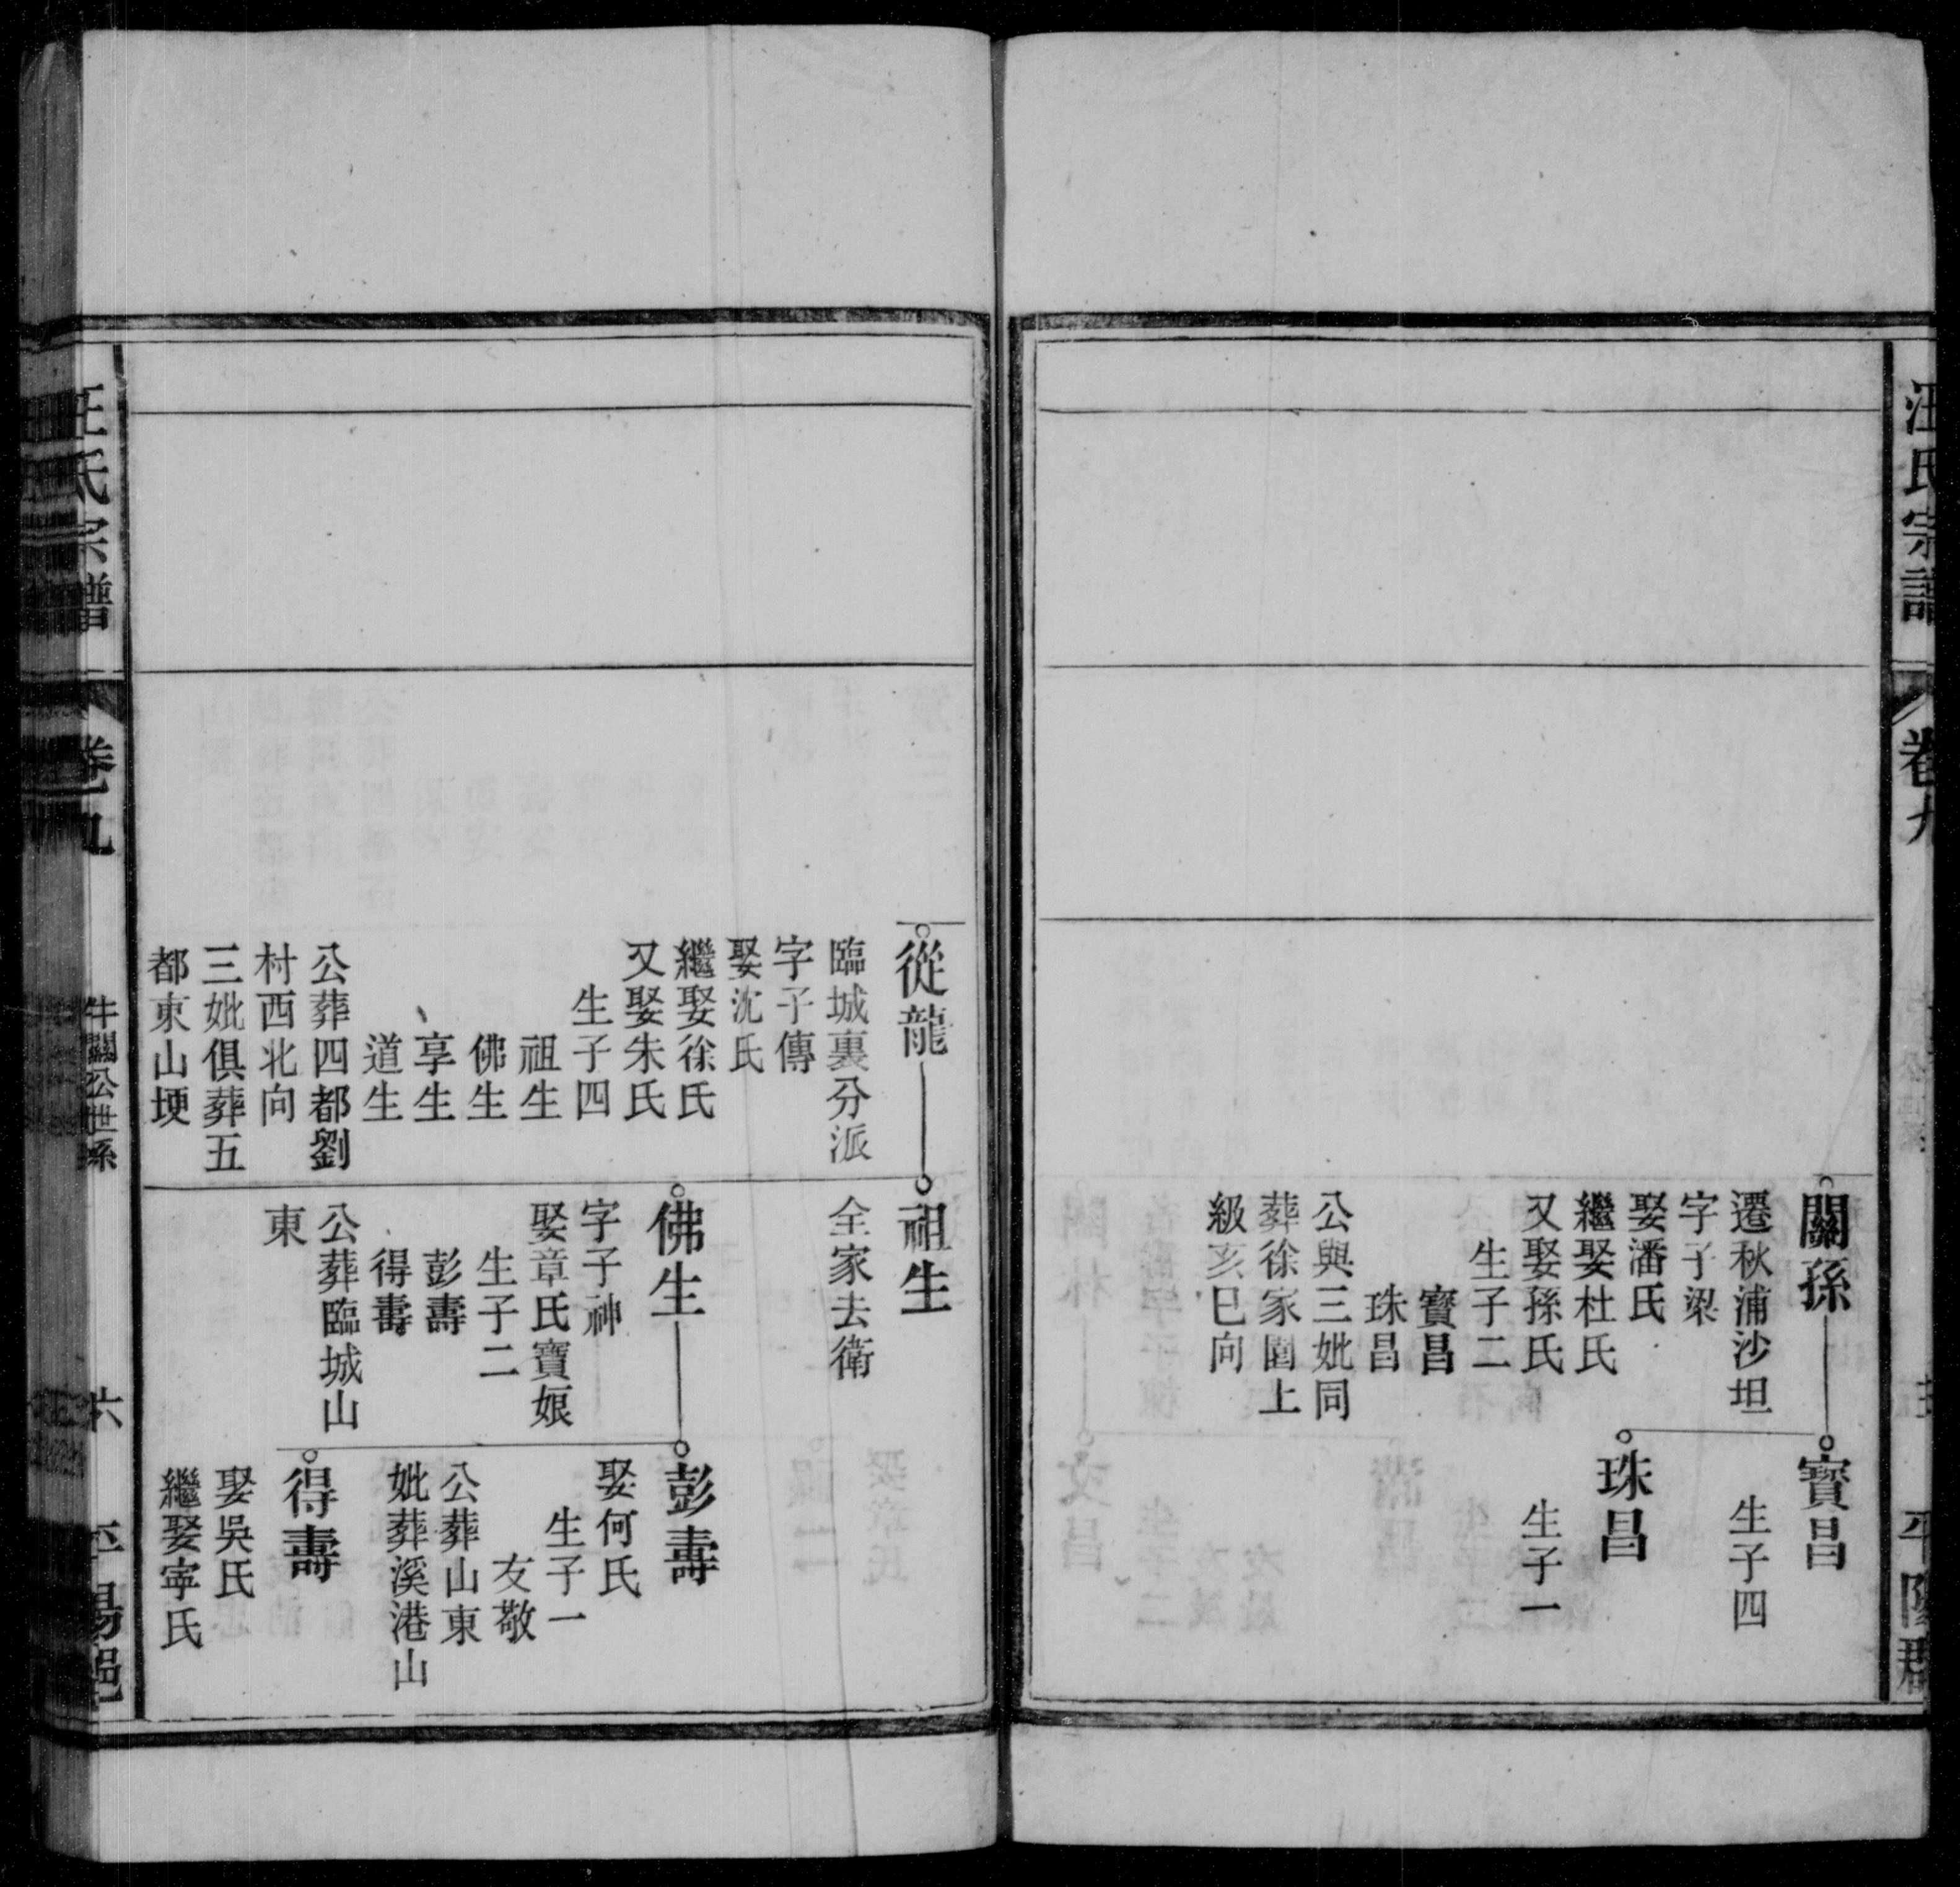 汪氏宗譜
卷九
平陽郡
關孫
遷秋浦沙坦
字子梁
娶潘氏
繼娶杜氏
又娶孫氏
生子二
寶昌
珠昌
公與三妣同
葬徐家園上
級亥巳向
寶昌
生子四
珠昌
生子一
從龍
臨城裏分派
字子傳
娶沈氏
繼娶徐氏
又娶朱氏
生子四
祖生
佛生
享生
道生
公葬四都劉
村西北向
三妣俱葬五
都東山埂
祖生
全家去衛
佛生
字子神
娶章氏寶娘
生子二
彭壽
得壽
公葬臨城山
東
彭壽
娶何氏
生子一
友敬
公葬山東
妣葬溪港山
得壽
娶吳氏
繼娶寧氏
汪氏宗譜
卷九
牛關公世系
六
平陽郡